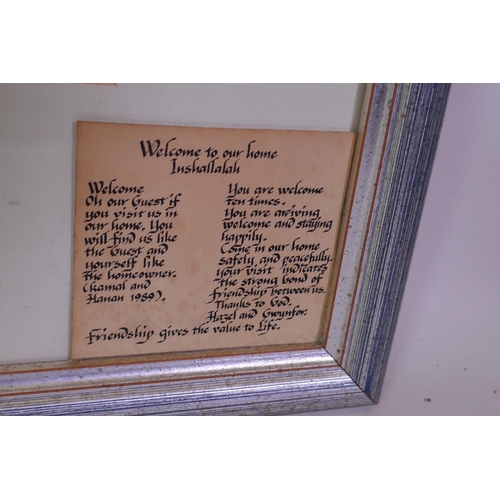 Welcome to our home
Inshallalah
Welcome
Oh our Guest if
you visit us in
our home. You
will find us like
the Guest and
yourself like
the homeowner.
(Kamal and
Hanan 1989).
You are welcome
ten times.
You are arriving
welcome and staying
happily.
Come in our home
safely and peacefully.
your visit indicates
the strong bond of
friendship between us.
Thanks to God.
Hazel and Gwynfor.
Friendship gives the value to Life.